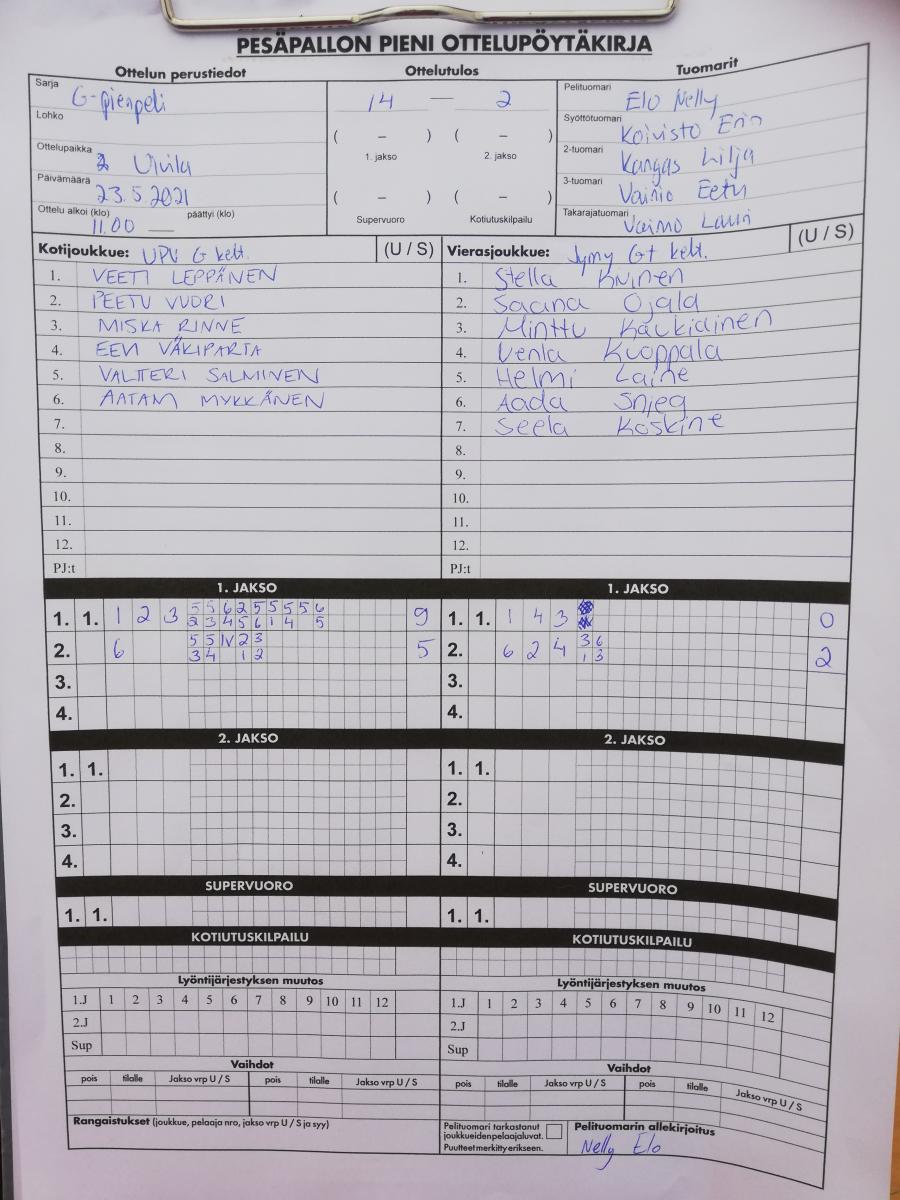 PESÄPALLON PIENI OTTELUPÖYTÄKIRJA
Ottelun perustiedot
Sarja G-pienpeli
Lohko
Ottelupaikka Ulvila
Päivämäärä 23.5.2021
Ottelu alkoi (klo) 11.00 päättyi (klo)
Ottelutulos
14 — 2
( – ) ( – )
1. jakso 2. jakso
( – ) ( – )
Supervuoro Kotiutuskilpailu
Tuomarit
Pelituomari Elo Nelly
Syöttötuomari Koivisto
2-tuomari Kangas Lilja
3-tuomari Vainio Eetu
Takarajatuomari Vainio Lauri
Kotijoukkue: UPV G kelt. (U / S)
1. VEETI LEPPÄNEN
2. PEETU VUORI
3. MISKA RINNE
4. EEVI VÄKIPARTA
5. VALTTERI SALMINEN
6. AATAMI MYKKÄNEN
7.
8.
9.
10.
11.
12.
PJ:t
Vierasjoukkue: Jymy G+ kelt. (U / S)
1. Stella
2. Saana Ojala
3. Minttu Kaukiainen
4. Venla Kuoppala
5. Helmi Laine
6. Aada Snieg
7. Seela Koskine
8.
9.
10.
11.
12.
PJ:t
1. JAKSO
1. 1. 1 2 3 5 5 6 2 5 5 5 5 6 9
2 3 4 5 6 1 4 5
2. 6 5 5 IV 2 3 5
3 4 1 2
3.
4.
1. JAKSO
1. 1. 1 4 3 0
2. 6 2 4 3 6 2
1 3
3.
4.
2. JAKSO
1. 1.
2.
3.
4.
2. JAKSO
1. 1.
2.
3.
4.
SUPERVUORO
1. 1.
SUPERVUORO
1. 1.
KOTIUTUSKILPAILU
KOTIUTUSKILPAILU
Lyöntijärjestyksen muutos
1.J 1 2 3 4 5 6 7 8 9 10 11 12
2.J
Sup
Lyöntijärjestyksen muutos
1.J 1 2 3 4 5 6 7 8 9 10 11 12
2.J
Sup
Vaihdot
pois tilalle Jakso vrp U / S pois tilalle Jakso vrp U / S
Vaihdot
pois tilalle Jakso vrp U / S pois tilalle Jakso vrp U / S
Rangaistukset (joukkue, pelaaja nro, jakso vrp U / S ja syy)
Pelituomari tarkastanut
joukkueiden pelaajaluvat.
Puutteet merkitty erikseen.
Pelituomarin allekirjoitus
Nelly Elo